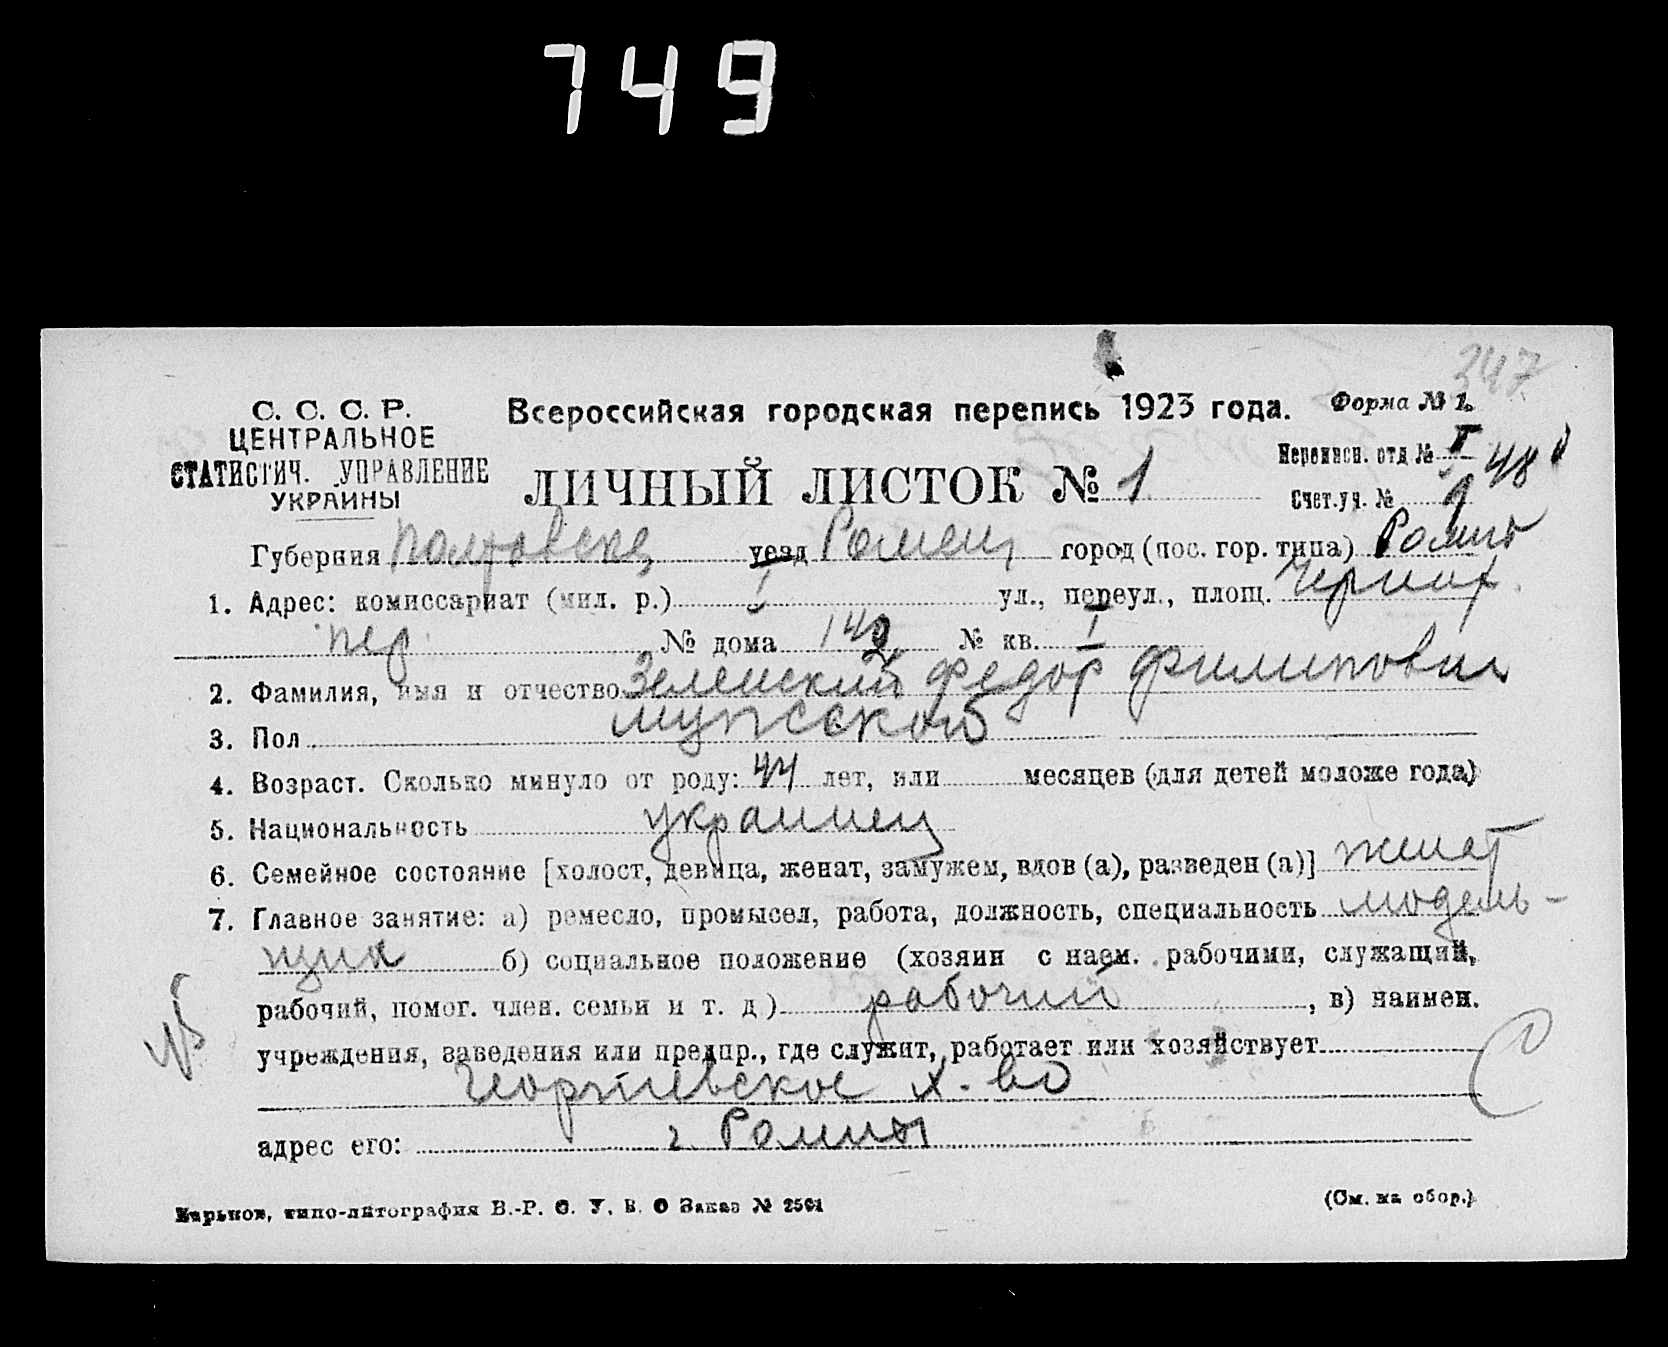 749
347
С. С. С. Р.
ЦЕНТРАЛЬНОЕ
СТАТИСТИЧ. УПРАВЛЕНИЕ
УКРАИНЫ
Всероссийская городская перепись 1923 года.
Форма № 1.
ЛИЧНЫЙ ЛИСТОК № 1
Переписн. отд № I 48
Счет.уч. № 9
Губерния Полтавска уезд Ромен город (пос. гор. типа) Ромны
1. Адрес: комиссариат (мил. р.) ул., переул., площ.
пер. № дома 142 № кв. I
2. Фамилия, имя и отчество Зеленский Федор Филипович
3. Пол мужской
4. Возраст. Сколько минуло от роду: 44 лет, или месяцев (для детей моложе года)
5. Национальность украинец
6. Семейное состояние [холост, девица, женат, замужем, вдов (а), разведен (а)] женат
7. Главное занятие: а) ремесло, промысел, работа, должность, специальность модель-
щик б) социальное положение (хозяин с наем. рабочими, служащий,
рабочий, помог. член. семьи и т. д) рабочий, в) наимен.
учреждения, заведения или предпр., где служит, работает или хозяйствует
Георгиевское х-во
адрес его: г. Ромны
Харьков, типо-литография В.-Р. С. У. В. О Заказ № 2501
(См. на обор.)